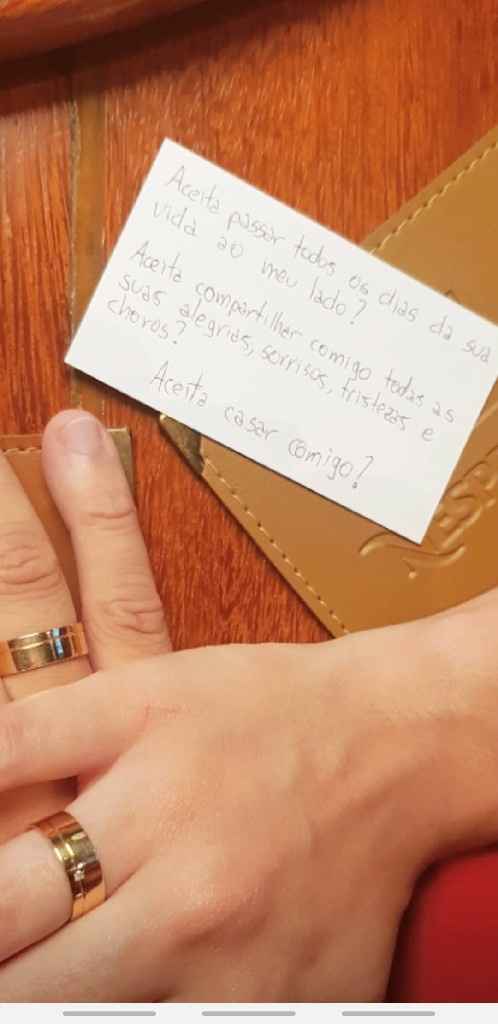 Aceita passar todos os dias da sua
vida ao meu lado?
Aceita compartilhar comigo todas as
suas alegrias, sorrisos, tristezas e
choros?
Aceita casar comigo?